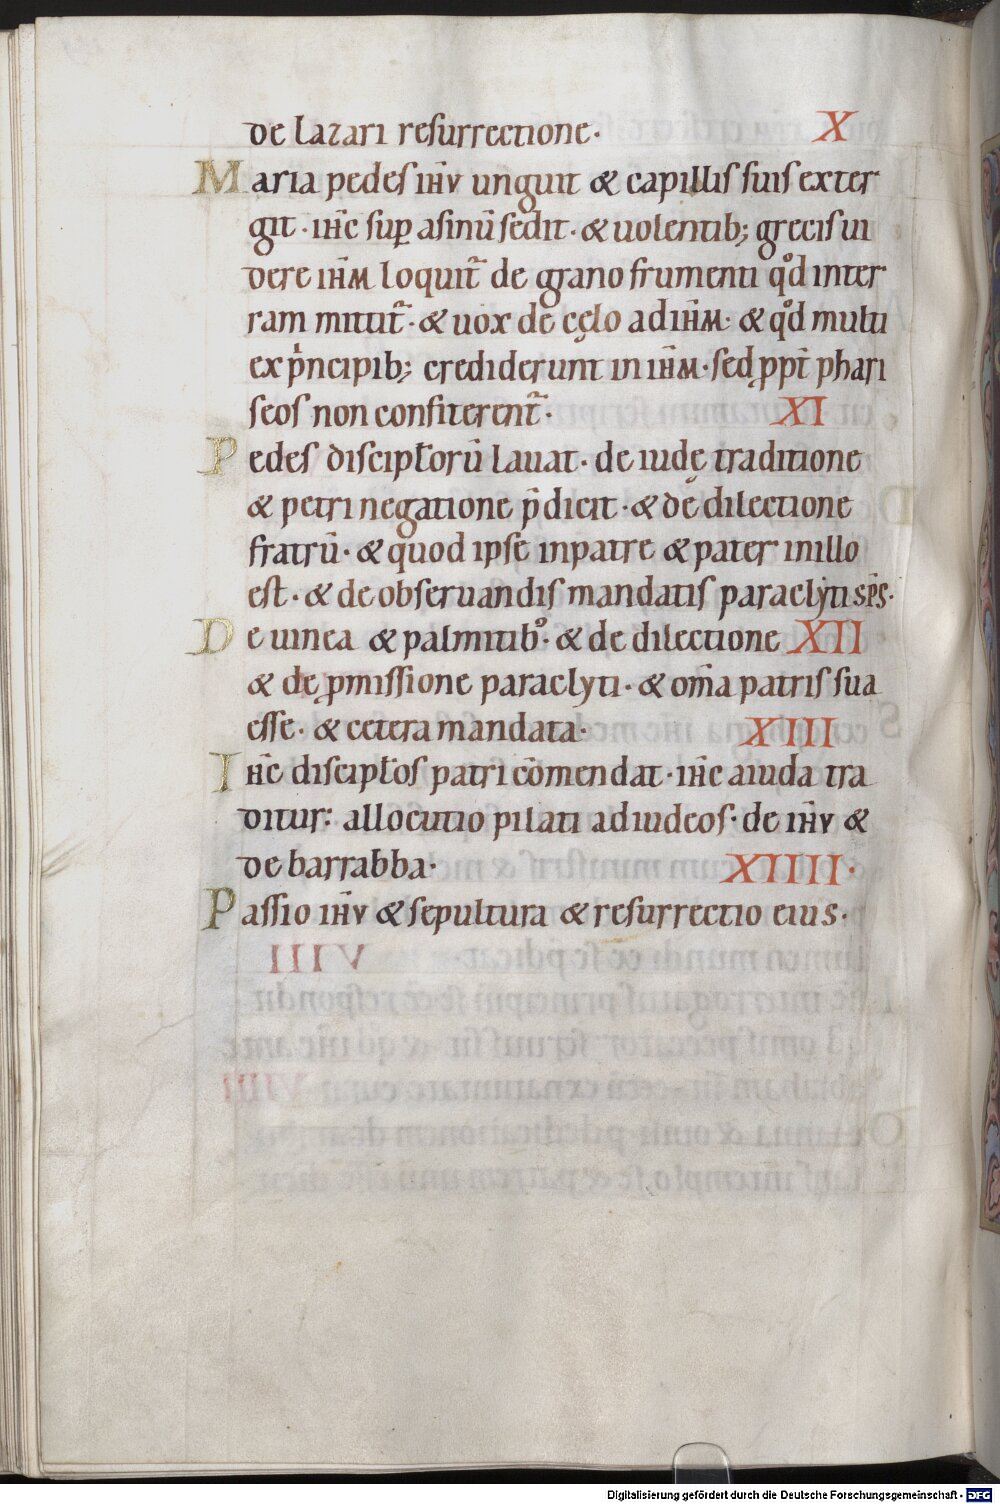 de lazari resurrectione· X
Maria pedes iħv unguit & capillis suis exter
git · iħc sup̱ asinū sedit · & uolentib; grecis ui
dere iħm loquit᷑ de grano frumenti qͦd inter
ram mittit᷑ · & uox de cęlo ad iħm · & qͦd multi
ex pͥncipib; crediderunt in iħm · sed ꝓpt̄ phari
seos non confiterent᷑ · XI
Pedes discipɫorū lauat · de iudę traditione
& petri negatione p̄dicit · & de dilectione
fratrū · & quod ipse inpatre & pater inillo
est · & de obseruandis mandatis paraclyti sp̄s ·
De uinea & palmitibꝰ · & de dilectione XII
& de ꝓmissione paraclyti · & om̄a patris sua
esse · & cetera mandata · XIII
Iħc discipɫos patri cōmendat · iħc aiuda tra
ditur : allocutio pilati adiudeos · de iħv &
de barrabba · XIIII ·
Passio iħv & sepultura & resurrectio eius ·
Digitalisierung gefördert durch die Deutsche Forschungsgemeinschaft - DFG